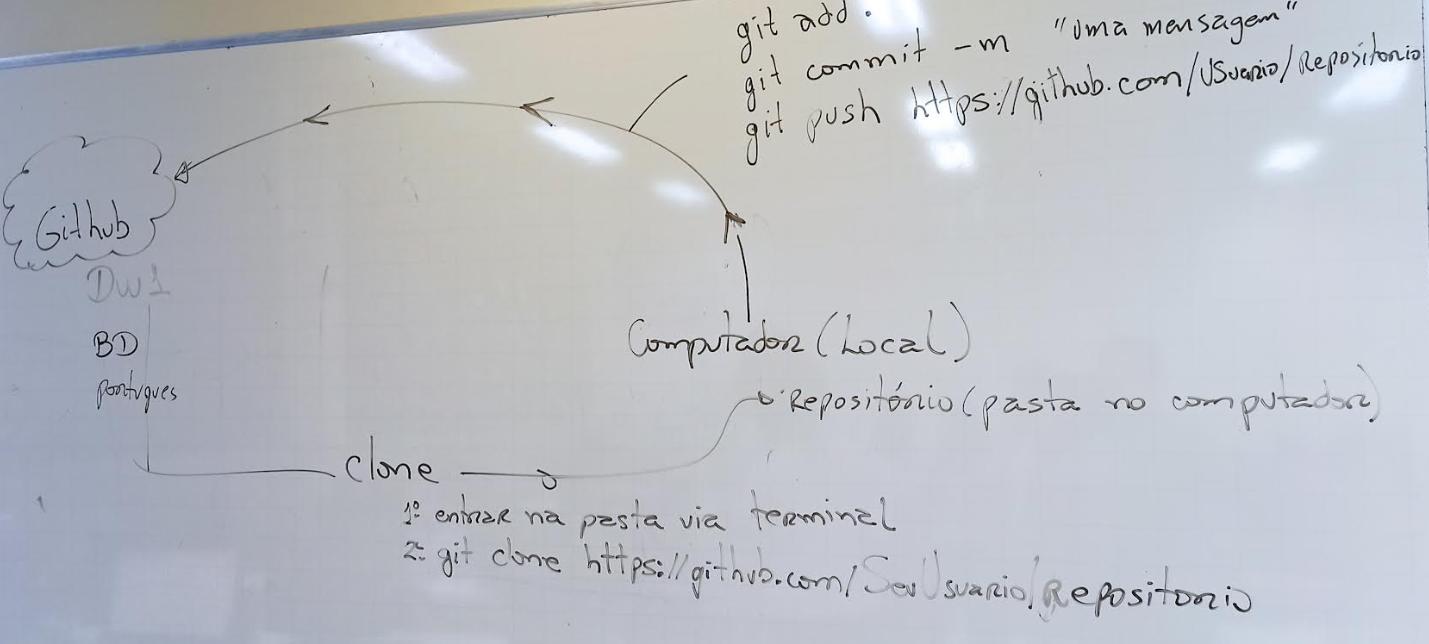 git add .
git commit -m "uma mensagem"
git push https://github.com/USuario/Repositorio
Github
Dw1
BD
portugues
Computador (Local)
Repositório (pasta no computador)
Clone
1º entrar na pasta via terminal
2º git clone https://github.com/SeuUsuario/Repositorio